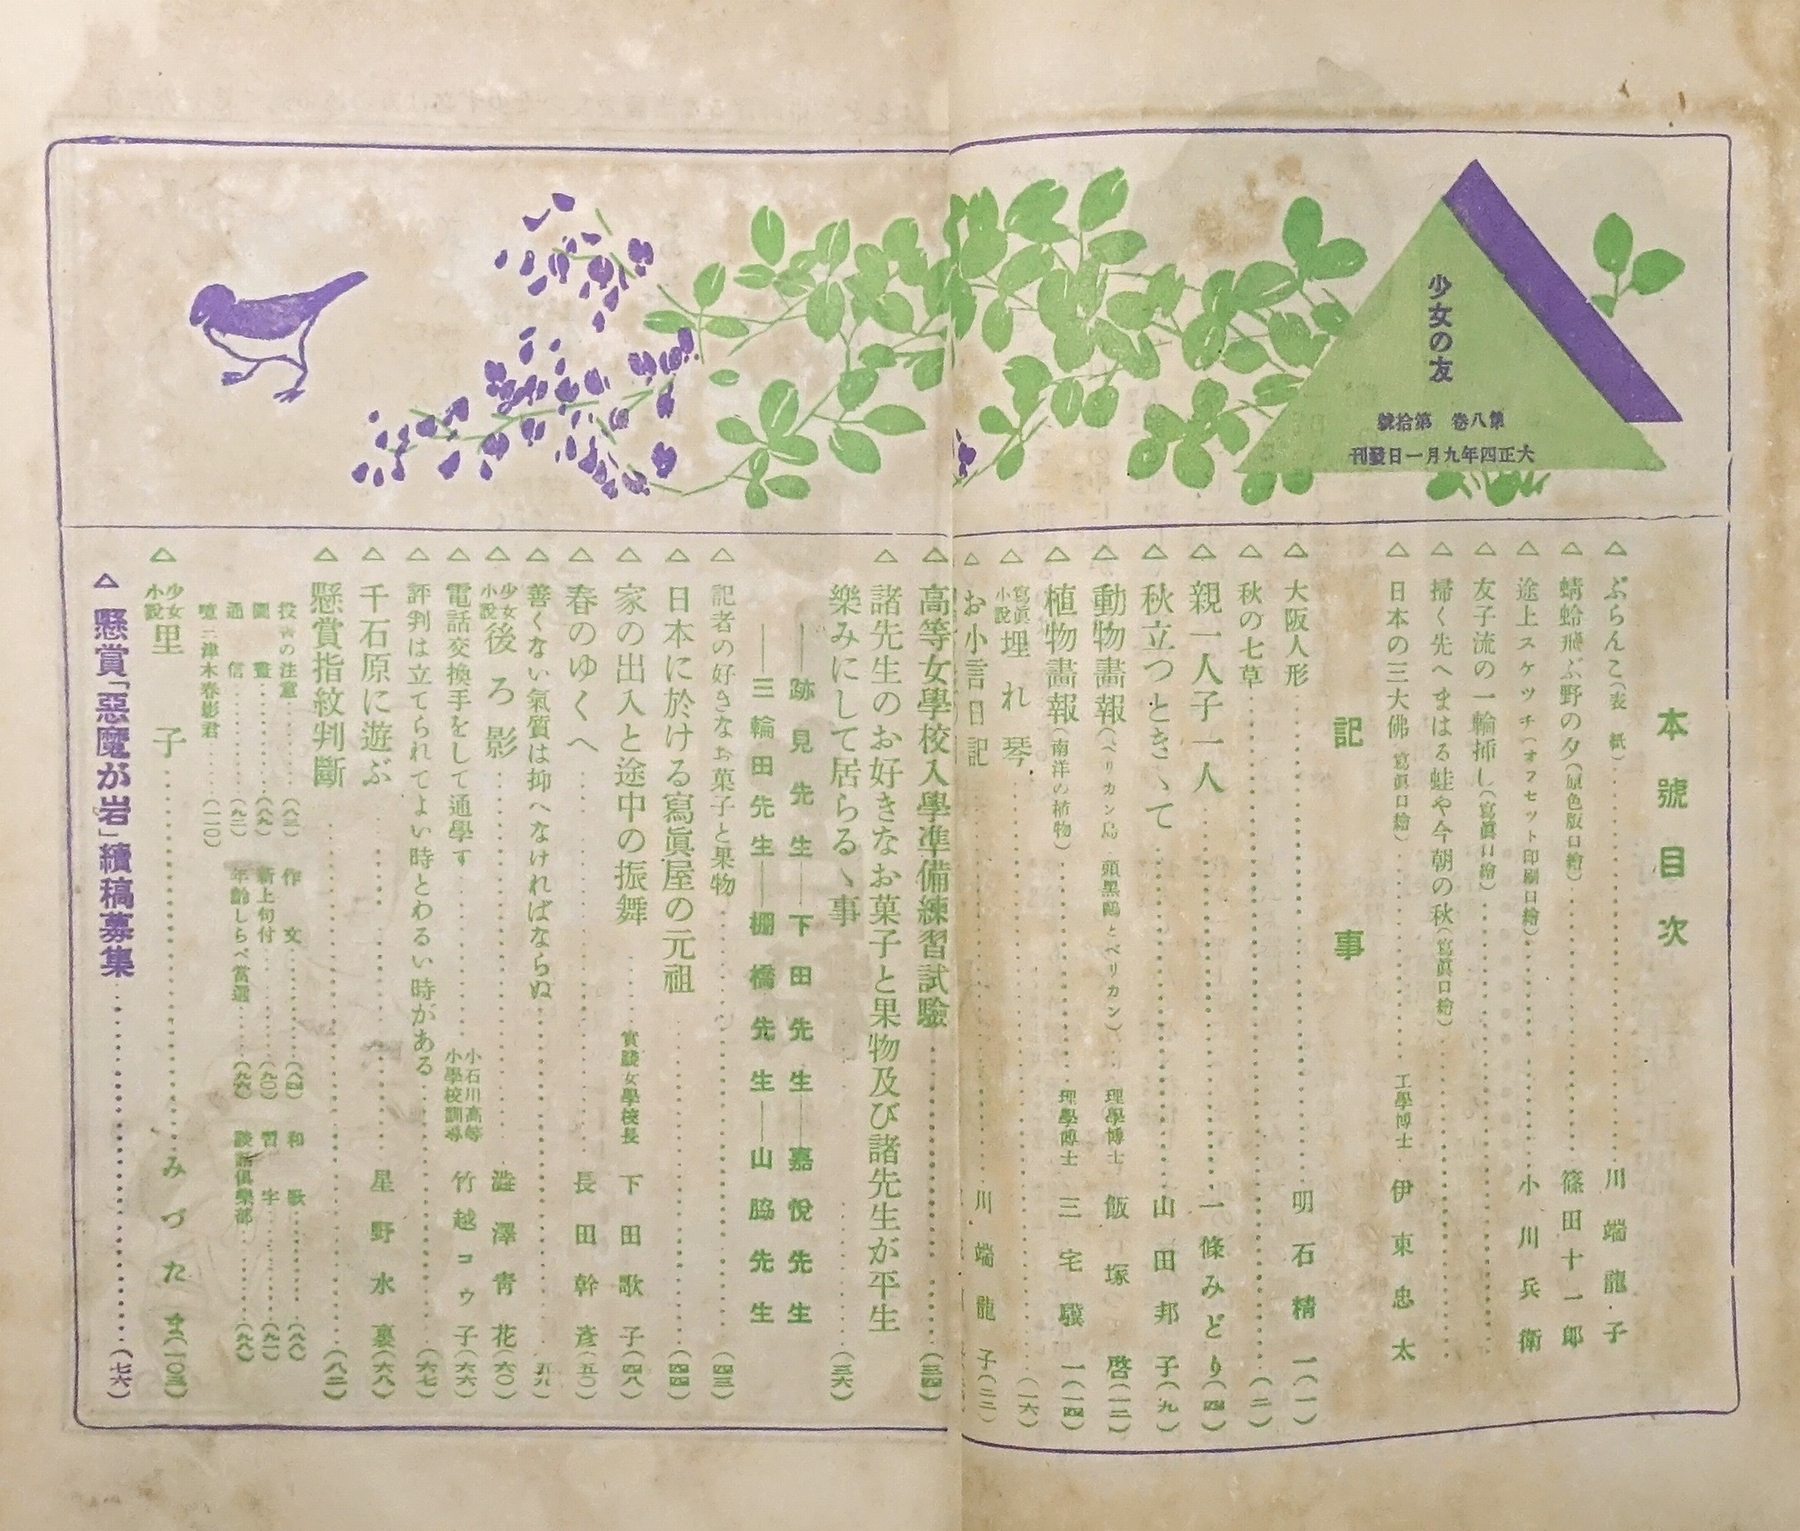 少女の友
第八卷 第拾號
大正四年九月一日發刊
本號目次
△ぶらんこ(表紙)……川端龍子
△蜻蛉飛ぶ野の夕(原色版口繪)……篠田十一郎
△途上スケツチ(オフセツト印刷口繪)……小川兵衛
△友子流の一輪挿し(寫眞口繪)……
△掃く先へまはる蛙や今朝の秋(寫眞口繪)……
△日本の三大佛(寫眞口繪)……工學博士 伊東忠太
記事
△大阪人形……明石精一(一)
△秋の七草……(二)
△親一人子一人……一條みどり(四)
△秋立つときゝて……山田邦子(九)
△動物畫報(ペリカン島 頭黑鷗とペリカン)……理學博士 飯塚啓(一二)
△植物畫報(南洋の植物)……理學博士 三宅驥一(一四)
△寫眞小説 埋れ琴……(一六)
△お小言日記……川端龍子(二二)
△高等女學校入學準備練習試驗……(三四)
△諸先生のお好きなお菓子と果物及び諸先生が平生
樂みにして居らるゝ事……(三六)
——跡見先生——下田先生——嘉悅先生
——三輪田先生——棚橋先生——山脇先生
△記者の好きなお菓子と果物……(四三)
△日本に於ける寫眞屋の元祖……(四四)
△家の出入と途中の振舞……實踐女學校長 下田歌子(四八)
△春のゆくへ……長田幹彦(五〇)
△善くない氣質は抑へなければならぬ……(五九)
△少女小説 後ろ影……澁澤青花(六〇)
△電話交換手をして通學す……小石川高等小學校訓導 竹越コウ子(六六)
△評判は立てられてよい時とわるい時がある……(六七)
△千石原に遊ぶ……星野水裏(六八)
△懸賞指紋判斷……(八二)
投書の注意……(八三) 作文……(八四) 和歌……(八八)
圖畫……(八九) 新上句付……(九〇) 習字……(九一)
通信……(九二) 年齡しらべ當選……(九六) 談話倶樂部……(九八)
噫三津木春影君……(一一〇)
△少女小説 里子……みづたま(一〇三)
△懸賞「惡魔が岩」續稿募集……(七六)